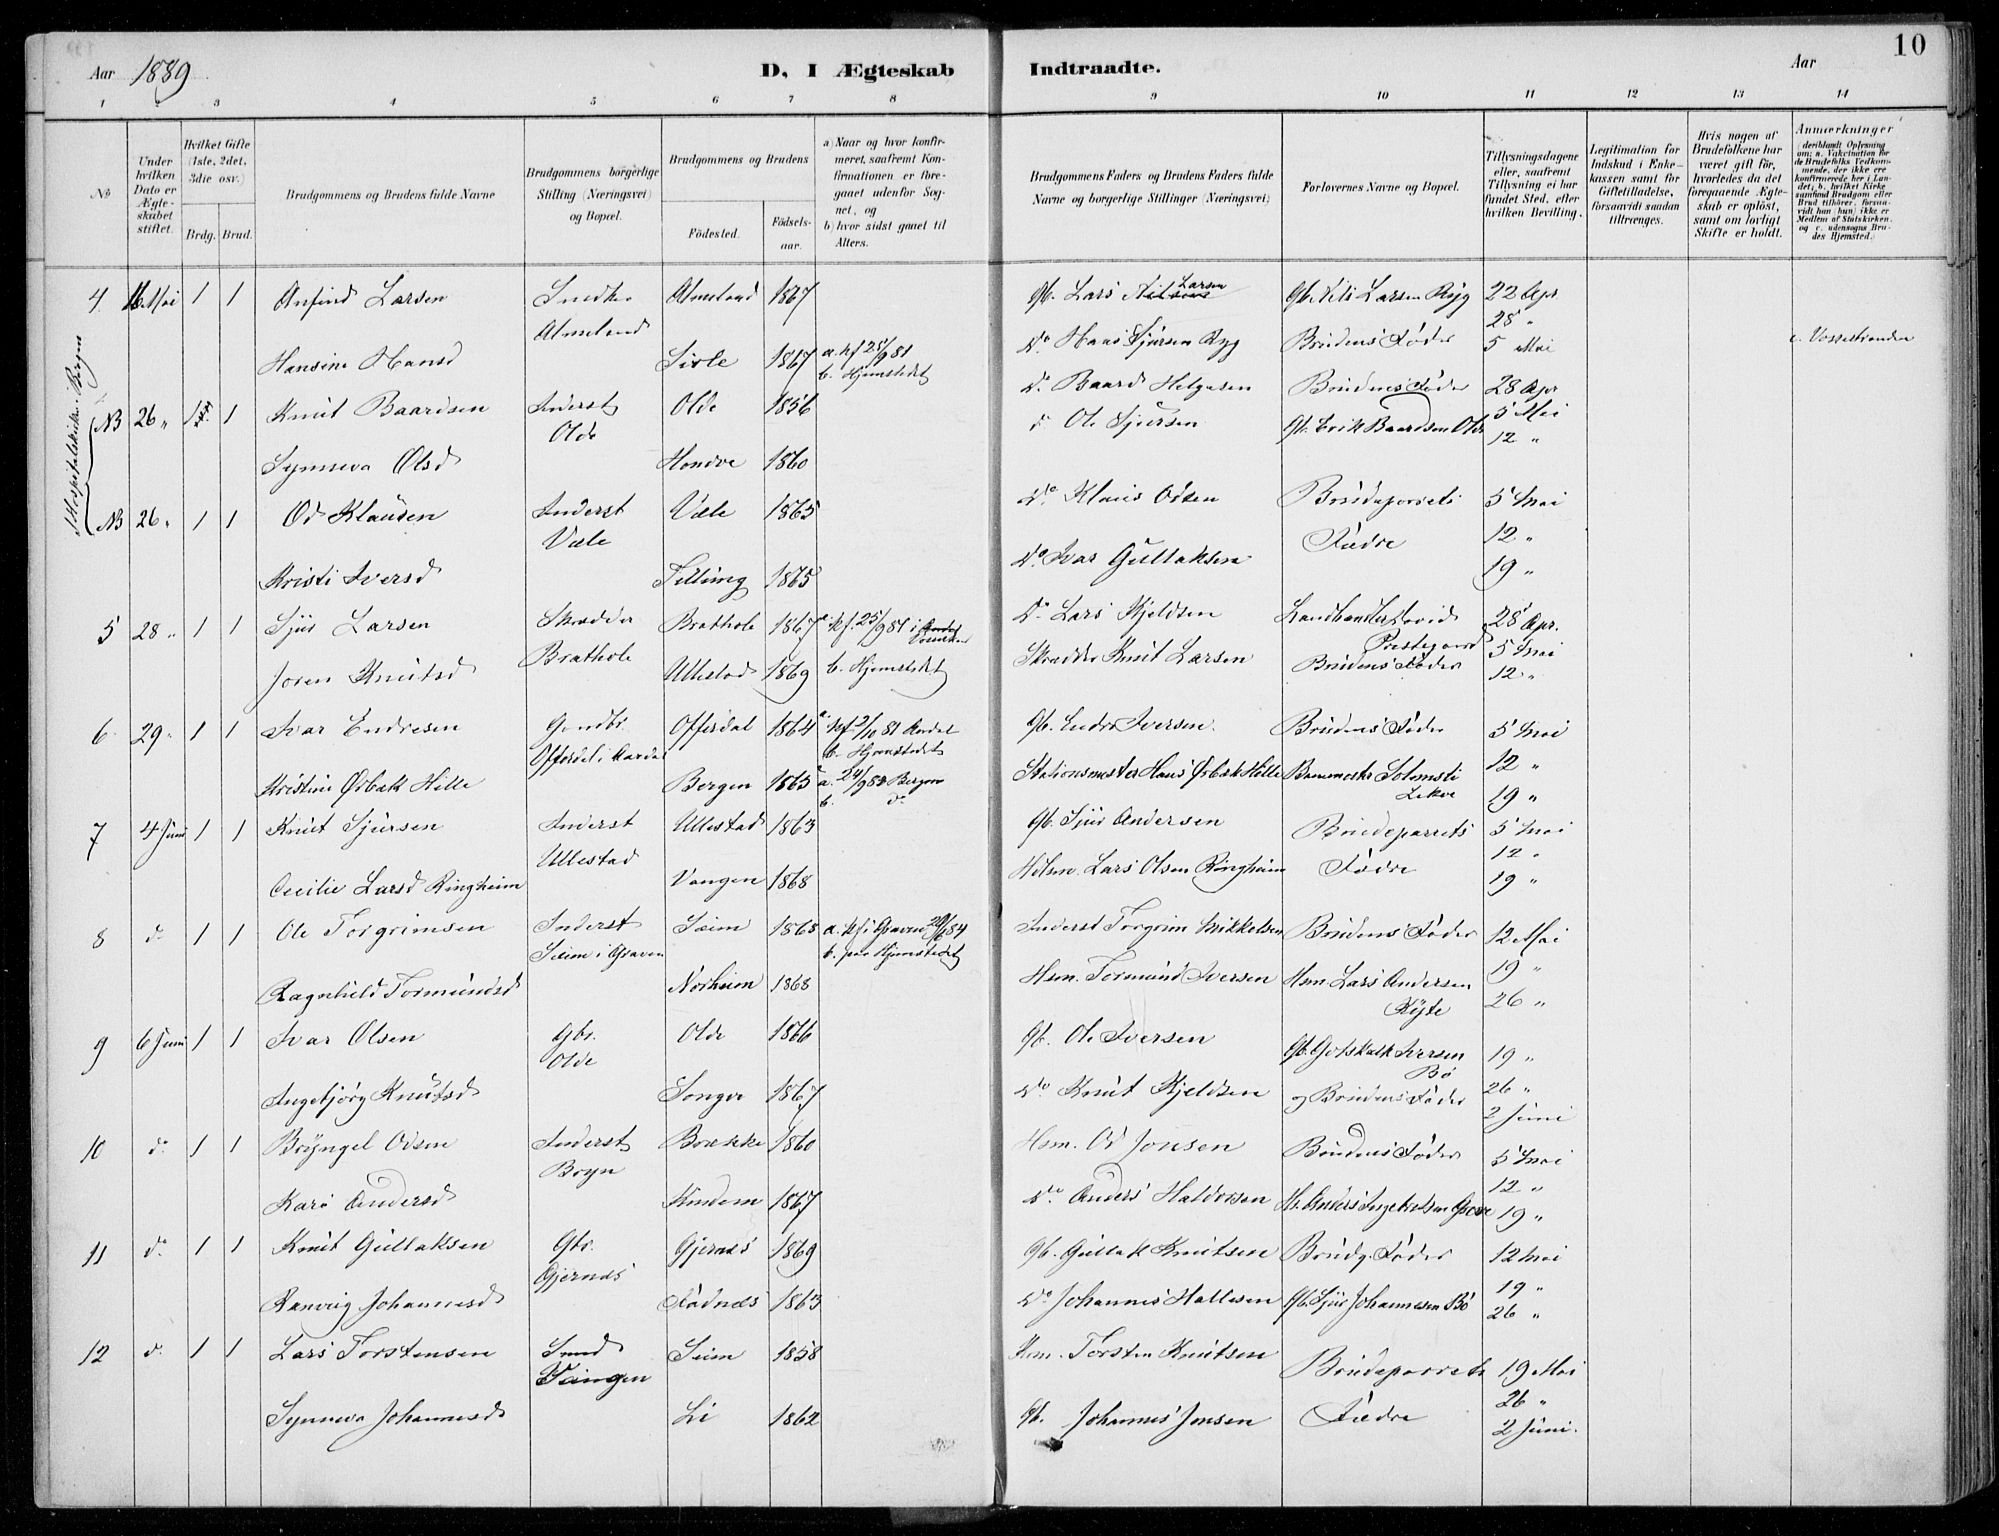 10
Aar 1889
D, I Ægteskab Indtraadte.
Aar
1 2 3 4 5 6 7 8 9 10 11 12 13 14
No
Under hvilken Dato er Ægteskabet stiftet.
Hvilket Gifte (1ste, 2det, 3die osv.)
Brdg. Brud.
Brudgommens og Brudens fulde Navne
Brudgommens borgerlige Stilling (Næringsvei) og Bopæl.
Brudgommens og Brudens
Födested.
Födselsaar.
a) Naar og hvor konfirmeret, saafremt Konfirmationen er foregaaet udenfor Sognet, og
b) hvor sidst gaaet til Alters.
Brudgommens Faders og Brudens Faders fulde Navne og borgerlige Stillinger (Næringsvei)
Forlovernes Navne og Bopæl.
Tillysningsdagene eller, saafremt Tillysning ei har fundet Sted, efter hvilken Bevilling.
Legitimation for Indskud i Enkekassen samt for Giftetilladelse, forsaavidt saadan tiltrænges.
Hvis nogen af Brudefolkene har været gift för, hvorledes da det foregaaende Ægteskab er oplöst, samt om lovligt Skifte er holdt.
Anmærkninger (deriblandt Oplysning om: a. Vakcination for de Brudefolks Vedkommende, der ikke ere konfirmerede her i Landet; b. hvilket Kirkesamfund Brudgom eller Brud tilhörer, forsaavidt han (hun) ikke er Medlem af Statskirken, og c. udensogns Brudes Hjemsted.)
4 16 Mai 1 1 Anfind Larsen Snedker Almeland 1867 Gb. Lars Nilsen Larsen Gb. Nils Larsen Ryg 22 Apr.
Almeland 28 "
Hansine Hansd Sivle 1867 a. kf 25/9 81 b. Hjemstedet Do Hans Sjursen Ryg Brudens Fader 5 Mai c. Vossestranden
I Hospitalskirken i Bergen
NB 26 " 1 1 Knut Baardsen Inderst Olde 1856 Do Baard Helgesen Brudens Fader 28 Apr
Olde 5 Mai
Synneva Olsd Hondve 1860 Do Ole Sjursen Gb. Erik Baardsen Olde 12 "
NB 26 " 1 1 Od Klausen Inderst Væle 1865 Do Klaus Odsen Brudeparrets 5 Mai
Væle 12 "
Kristi Iversd Tillung 1865 Do Ivar Gullaksen Fædre 19 "
5 28 " 1 1 Sjur Larsen Skrædder Brathole 1867 a. kf. 25/9 81 i Do Lars Kjeldsen Landhandler 28 Apr.
Brathole Prestegaard 5 Mai
Joren Knutsd Ullestad 1869 b. Hjemstedet Skrædder Knut Larsen Brudens Fader 12 "
6 29 " 1 1 Ivar Endresen Gaardbr. Offerdal 1864 a. kf 2/10 81 Aardal Gb. Endre Iversen. Brudens Fader 5 Mai
Offerdal i Aardal b. Hjemstedet 12 "
Kristine Ørbæk Hille Bergen 1865 a. 24/9 82 Bergen b. do Stationsmester Hans Ørbæk Hille Banemester Lekve 19 "
7 4 Juni 1 1 Knut Sjursen Inderst Ullestad 1863 Gb. Sjur Andersen Brudeparrets 5 Mai
Ullestad 12 "
Cecilie Larsd Ringheim Vangen 1868 Lars Olsen Ringheim Fædre 19 "
8 do 1 1 Ole Torgrimsen Inderst Seim 1868 a. kf i Graven 84 Inderst Torgrim Mikkelsen Brudens Fader 12 Mai
Seim i Graven b. paa Hjemstedet 19 "
Ragnhild Tormundsd Norheim 1868 Hsm. Tormund Iversen Hsm. Lars Andersen Kyte 26 "
9 6 Juni 1 1 Ivar Olsen Gbr. Olde 1866 Gb. Ole Iversen Gb. Gotskalk Iversen Bø 19 "
Olde 26 "
Ingebjörg Knutsd Songve 1867 Do Knut Kjeldsen og Brudens Fader 2 Juni
10 do 1 1 Bryngel Odsen Inderst Brække 1860 Hsm. Od Jonsen Brudens Fader 5 Mai
Bryn 12 "
Kari Andersd Kindem 1867 Do Anders Haldorsen Anders Ingebretsen Gjerve 19 "
11 do 1 1 Knut Gullaksen Gbr. Gjernes 1869 Gb. Gullak Knutsen Brudg. Fader 12 Mai
Gjernes 19 "
Ranveig Johannesd Fadnes 1863 Do Johannes Hallesen Gb. Sjur Johannesen Bø 26 "
12 do 1 1 Lars Torstensen Smed Seim 1858 Hsm. Torsten Knutsen Brudeparrets 19 Mai
Vangen 26 "
Synneva Johannesd Li 1862 Gb. Johannes Jonsen Fædre 2 Juni.